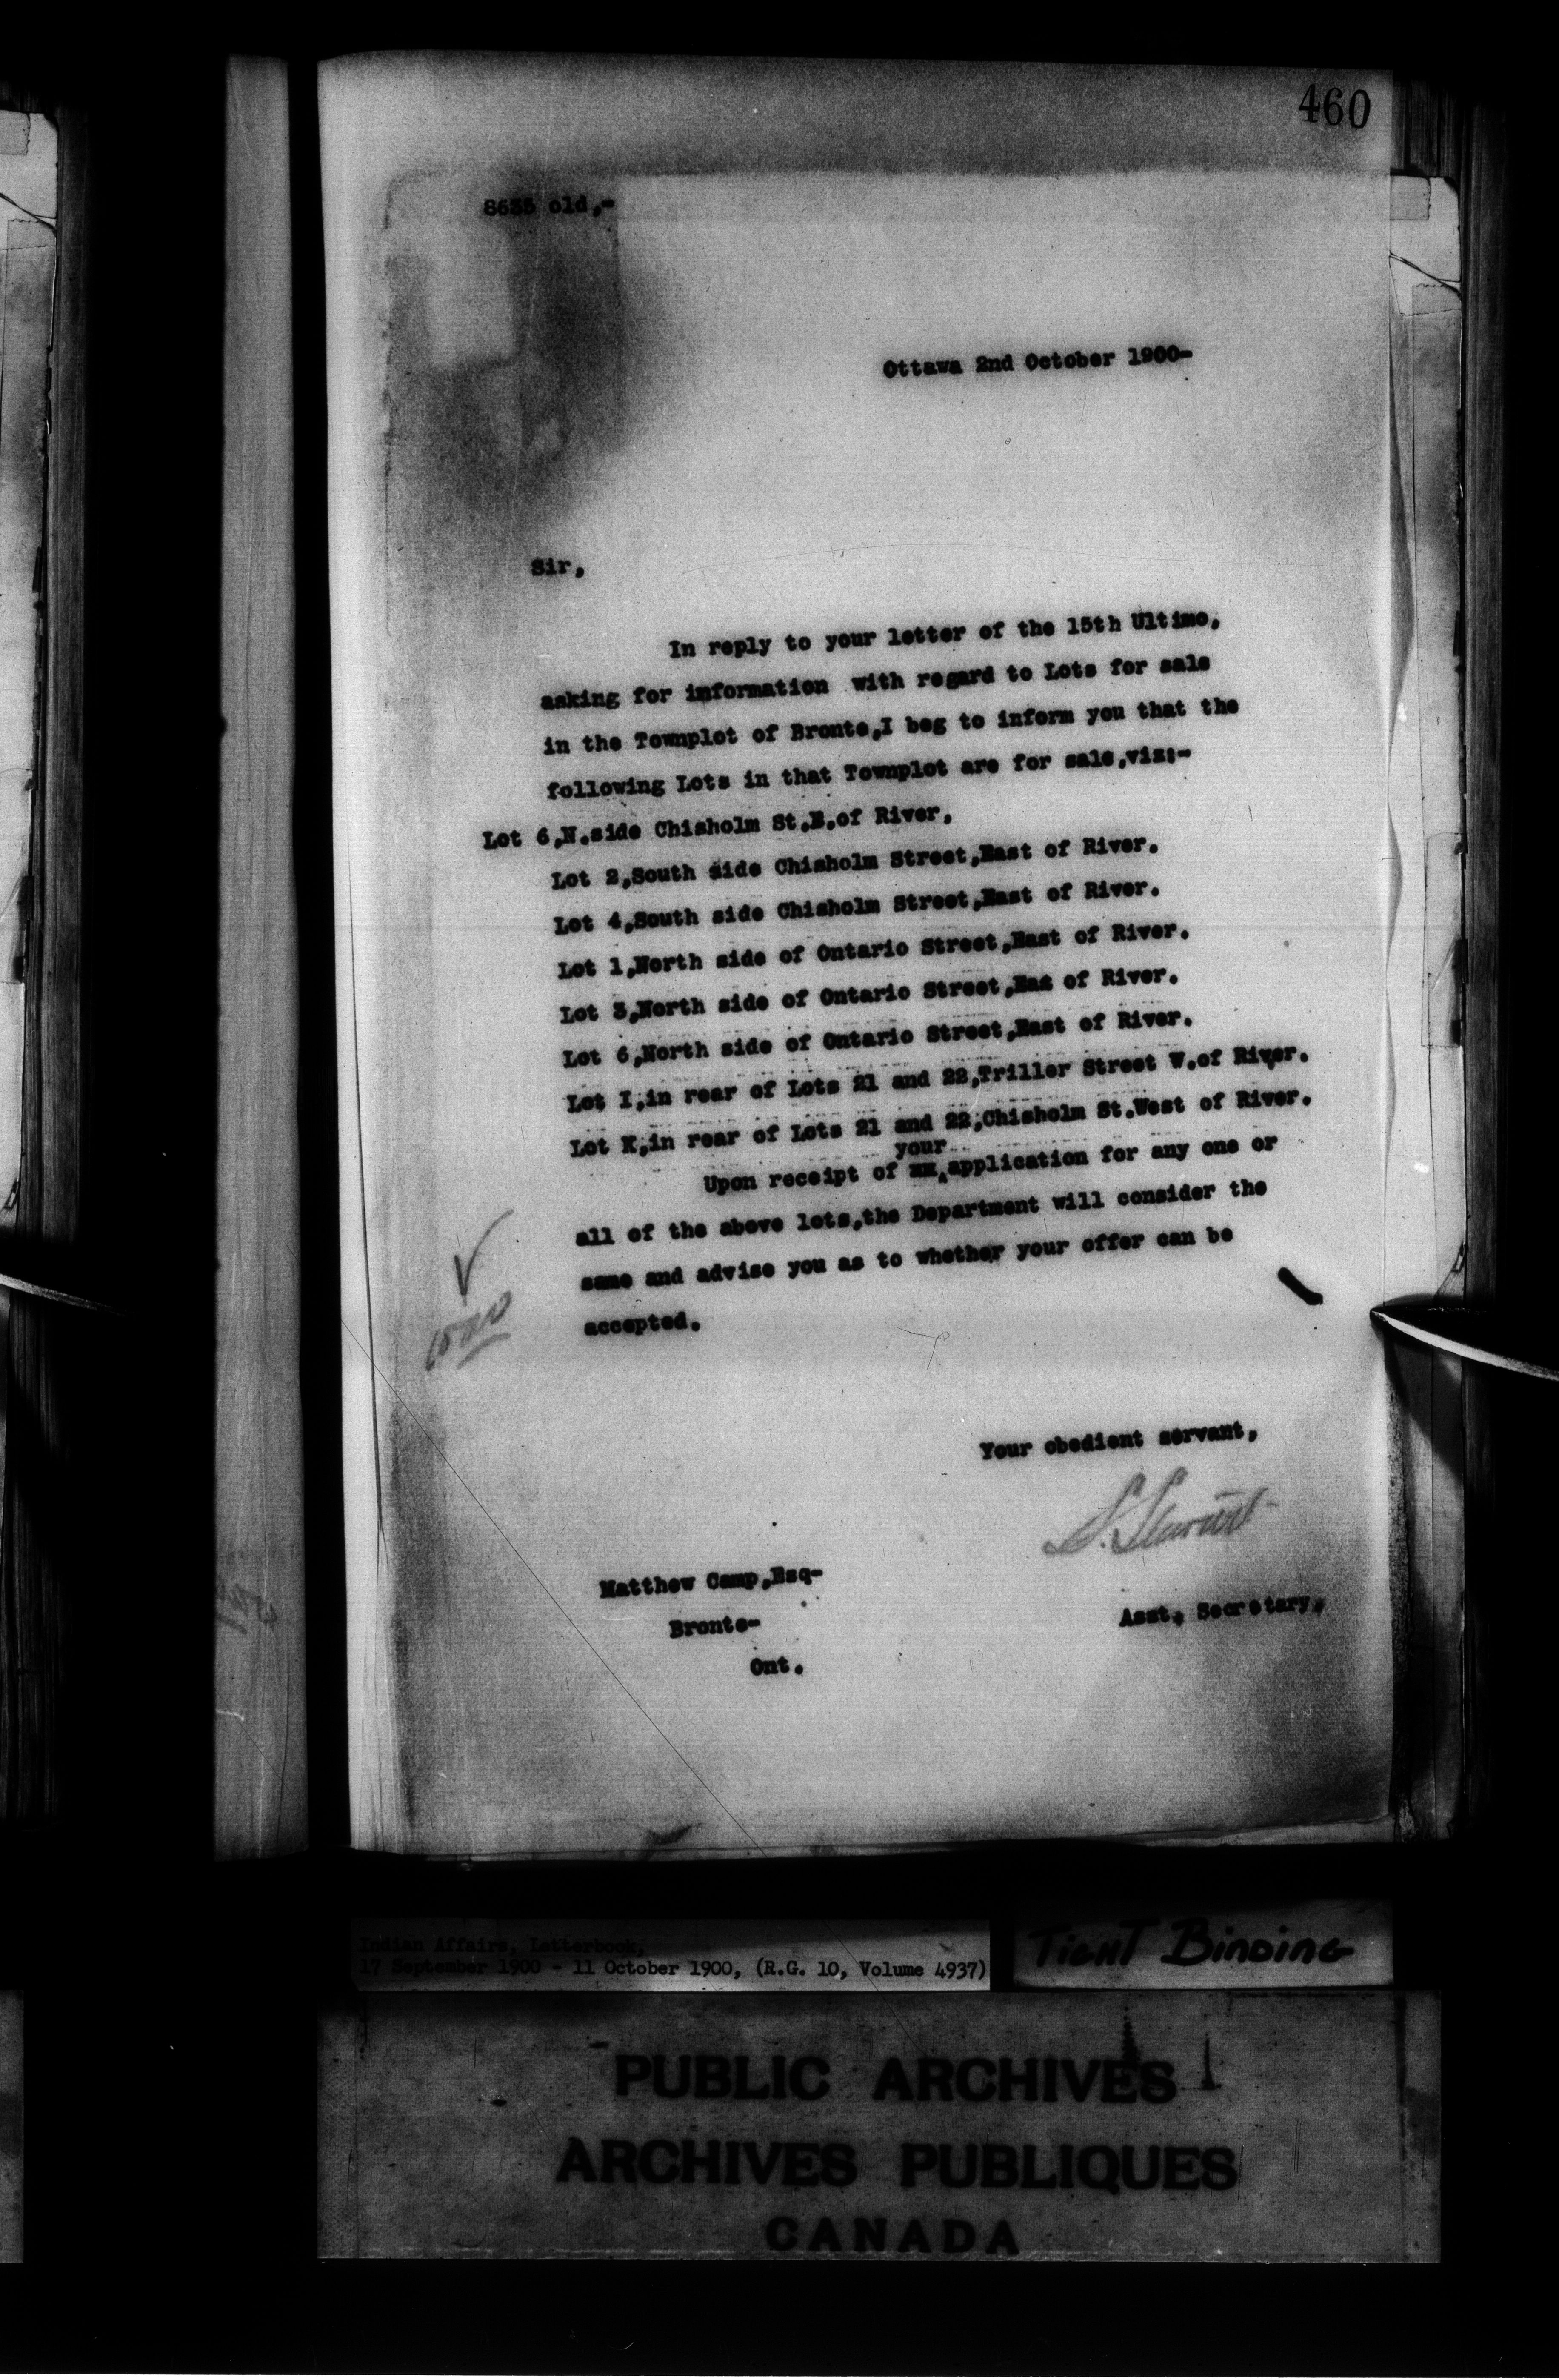 460
8635 old,-
Ottawa 2nd October 1900-
Sir,
In reply to your letter of the 15th Ultimo,
asking for information with regard to Lots for sale
in the Townplot of Bronte,I beg to inform you that the
following Lots in that Townplot are for sale,viz:-
Lot 6,N.side Chisholm St.E.of River.
Lot 2,South side Chisholm Street,East of River.
Lot 4,South side Chisholm Street,East of River.
Lot 1,North side of Ontario Street,East of River.
Lot 3,North side of Ontario Street,Eas of River.
Lot 6,North side of Ontario Street,East of River.
Lot I,in rear of Lots 21 and 22,Triller Street W.of River.
Lot K,in rear of Lots 21 and 22,Chisholm St.West of River.
your
Upon receipt of xx application for any one or
all of the above lots,the Department will consider the
same and advise you as to whether your offer can be
accepted.
Your obedient servant,
S. Stewart
Asst. Secretary.
Matthew Camp,Esq-
Bronte-
Ont.
Indian Affairs, Letterbook,
17 September 1900 - 11 October 1900, (R.G. 10, Volume 4937)
TIGHT BINDING
PUBLIC ARCHIVES
ARCHIVES PUBLIQUES
CANADA